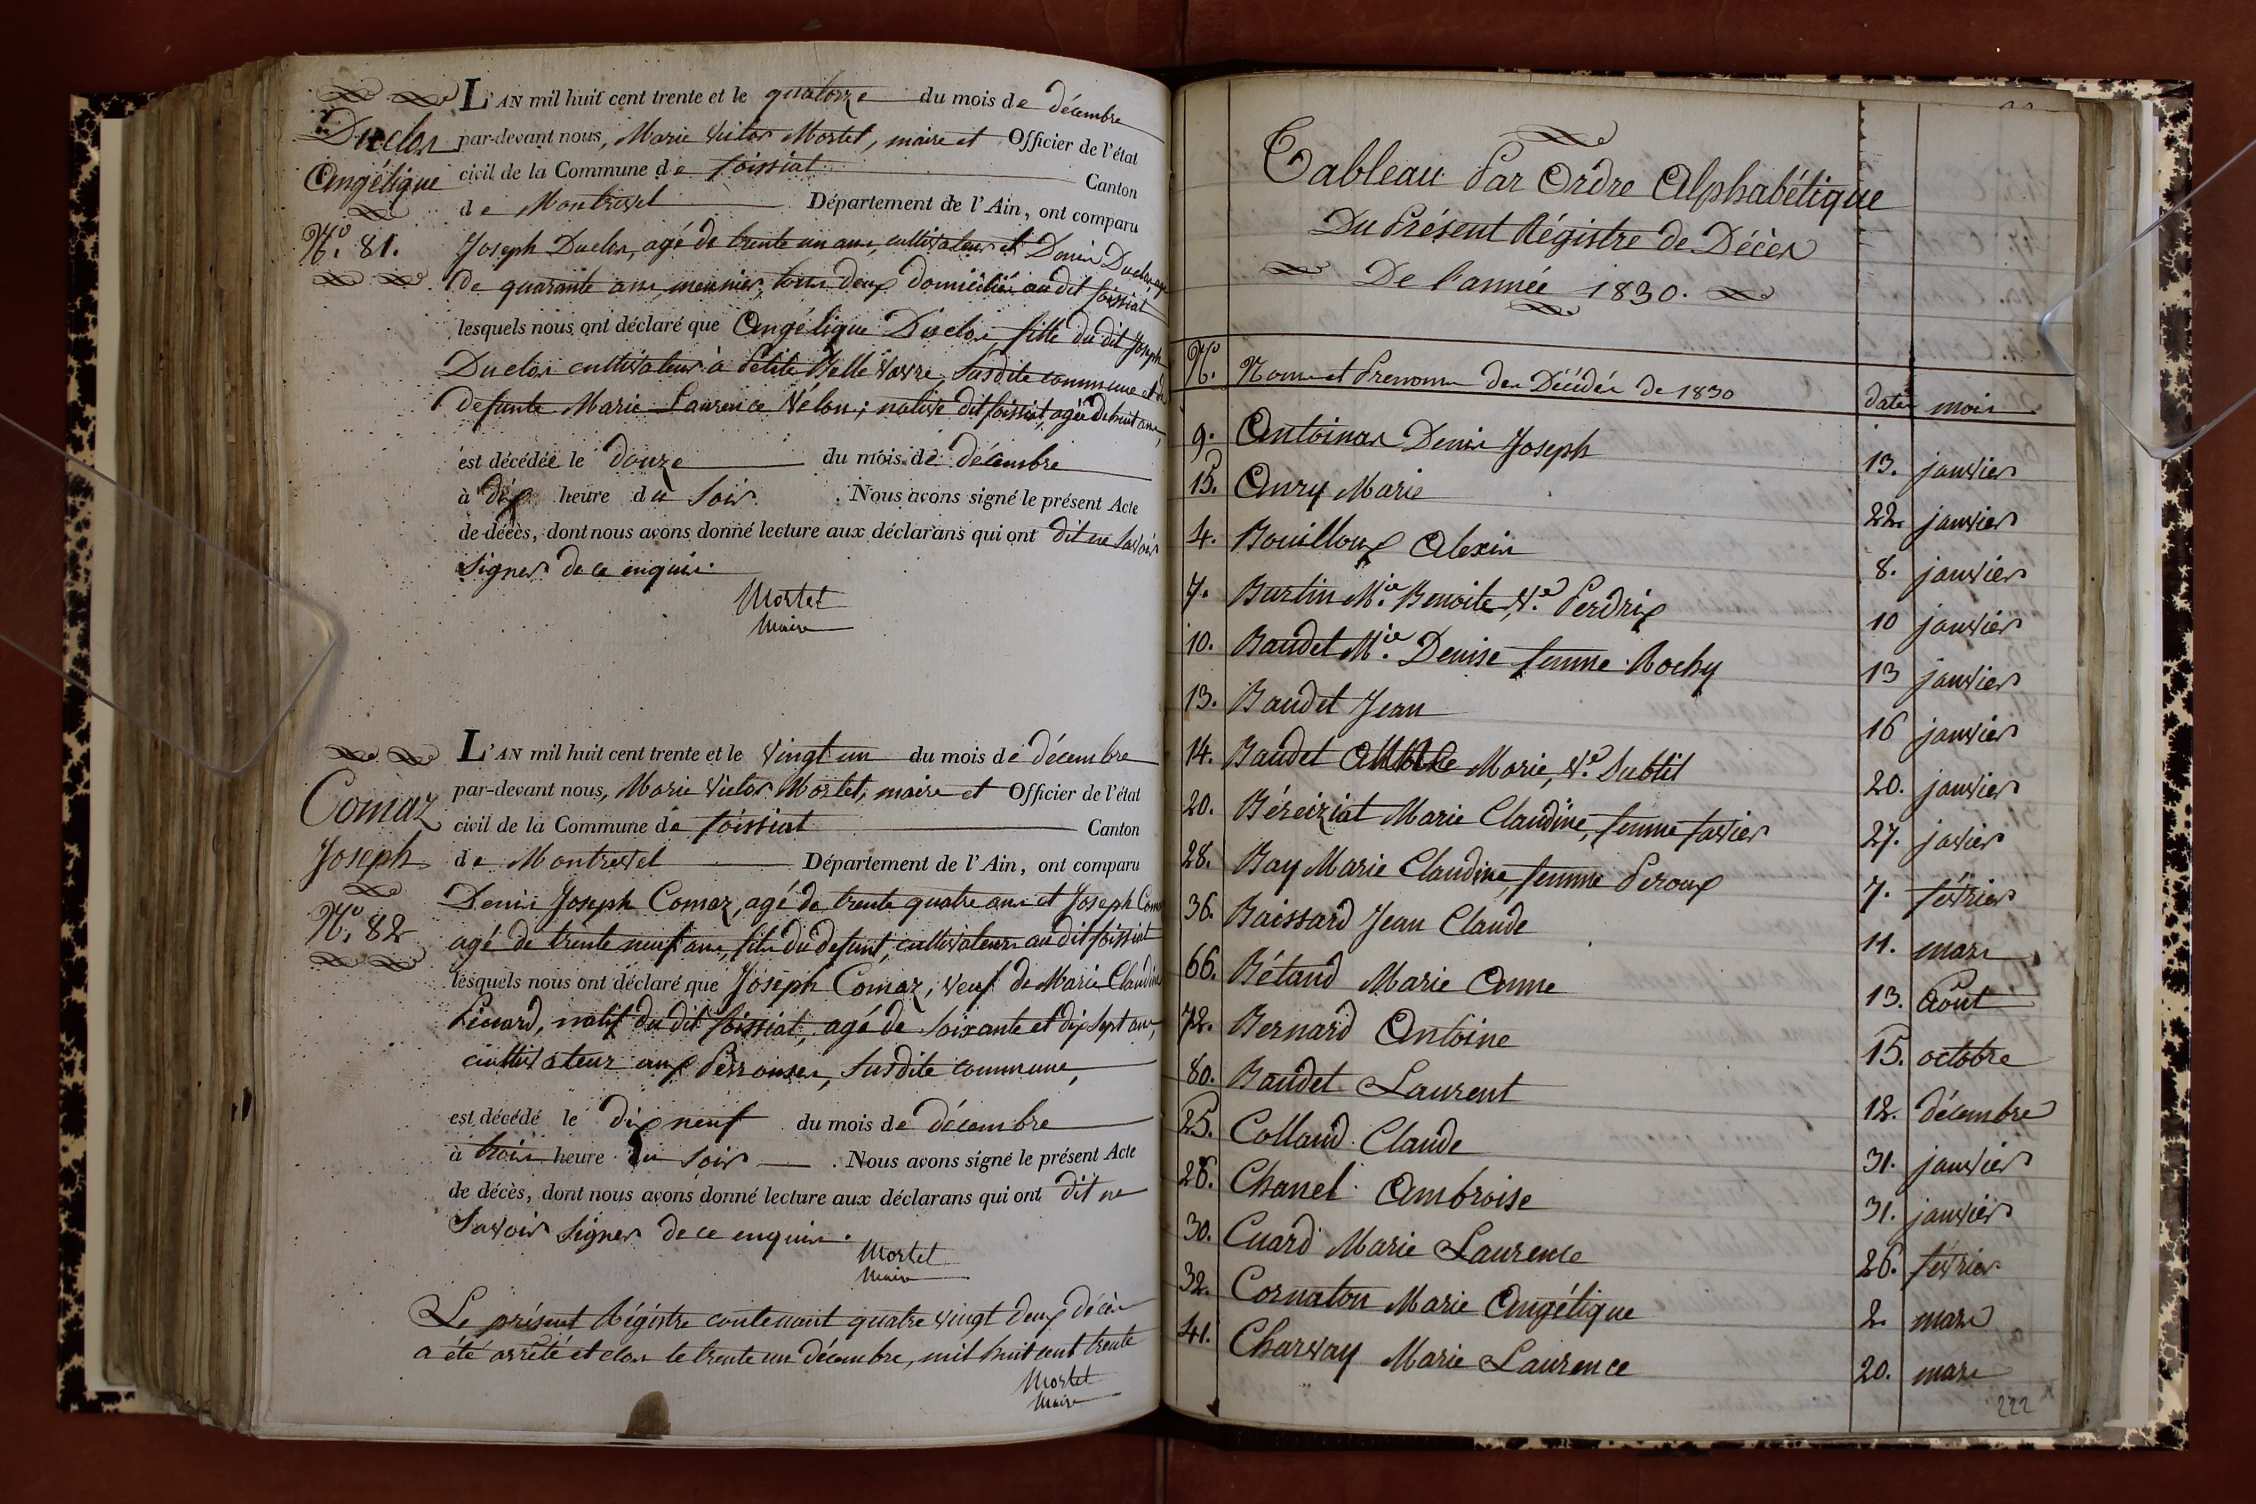 L'AN mil huit cent trente et le quatorze du mois de décembre
Duclos
Angélique
N.º 81.
par-devant nous, Marie Victor Mortet, maire et Officier de l'état
civil de la Commune de foissiat Canton
de Montrevel Département de l'Ain, ont comparu
Joseph Duclos, agé de trente un ans, cultivateur et Denis Duclos, agé
de quarante ans, meunier, tous deux domiciliés au dit foissiat
lesquels nous ont déclaré que Angélique Duclos, fille du dit Joseph
Duclos cultivateur à Petite Belle Vavre, susdite commune et de
defunte Marie Laurence Vélon; native dit foissiat, agée de huit ans,
est décédée le douze du mois de décembre
à dix heure du soir. Nous avons signé le présent Acte
de décès, dont nous avons donné lecture aux déclarans qui ont dit ne savoir
signer de ce enquis.
Mortet
Maire
L'AN mil huit cent trente et le vingt un du mois de décembre
Comaz
Joseph
N.º 82
par-devant nous, Marie Victor Mortet, maire et Officier de l'état
civil de la Commune de foissiat Canton
de Montrevel Département de l'Ain, ont comparu
Denis Joseph Comaz, agé de trente quatre ans et Joseph
agé de trente neuf ans, fils du defunt, cultivateurs au dit foissiat
lesquels nous ont déclaré que Joseph Comaz, veuf de Marie Claudine
natif du dit foissiat, agé de soixante et dix sept ans,
cultivateur aux Perrouses, susdite commune,
est décédé le dix neuf du mois de décembre
à trois heure du soir. Nous avons signé le présent Acte
de décès, dont nous avons donné lecture aux déclarans qui ont dit ne
savoir signer de ce enquis.
Mortet
Maire
Le présent Régistre contenant quatre vingt deux décès
a été arrêté et clos le trente un décembre, mil huit cent trente
Mortet
Maire
Tableau Par Ordre Alphabétique
Du Présent Régistre de Décès
De l'année 1830.
N.º Noms et Prenoms des Décédés de 1830 dates mois
9. Antoinas Denis Joseph 13. janvier
15. Anry Marie 22. janvier
4. Bouilloux Alexis 8. janvier
7. Burtin M.ie Benoite, V.e Perdrix 10 janvier
10. Baudet M.ie Denise femme Rochy 13 janvier
13. Baudet Jean 16 janvier
14. Baudet Marie, V.e Subtil 20. janvier
20. Béreiziat Marie Claudine, femme favier 27. javier
28. Bay Marie Claudine, femme Peroux 7. février
36. Baissard Jean Claude 11. mars
66. Bétaud Marie Anne 13. Août
72. Bernard Antoine 15. octobre
80. Baudet Laurent 12. décembre
25. Colland Claude 31. janvier
26. Chanel Ambroise 31. janvier
30. Cuard Marie Laurence 26. février
32. Cornaton Marie Angélique 2. mars
41. Charvay Marie Laurence 20. mars
222